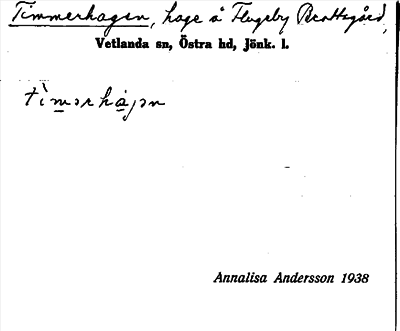 Timmerhagen, hage å Flugeby Brattsgård,
Vetlanda sn, Östra hd, Jönk. l.
tìmərhàgən
Annalisa Andersson 1938